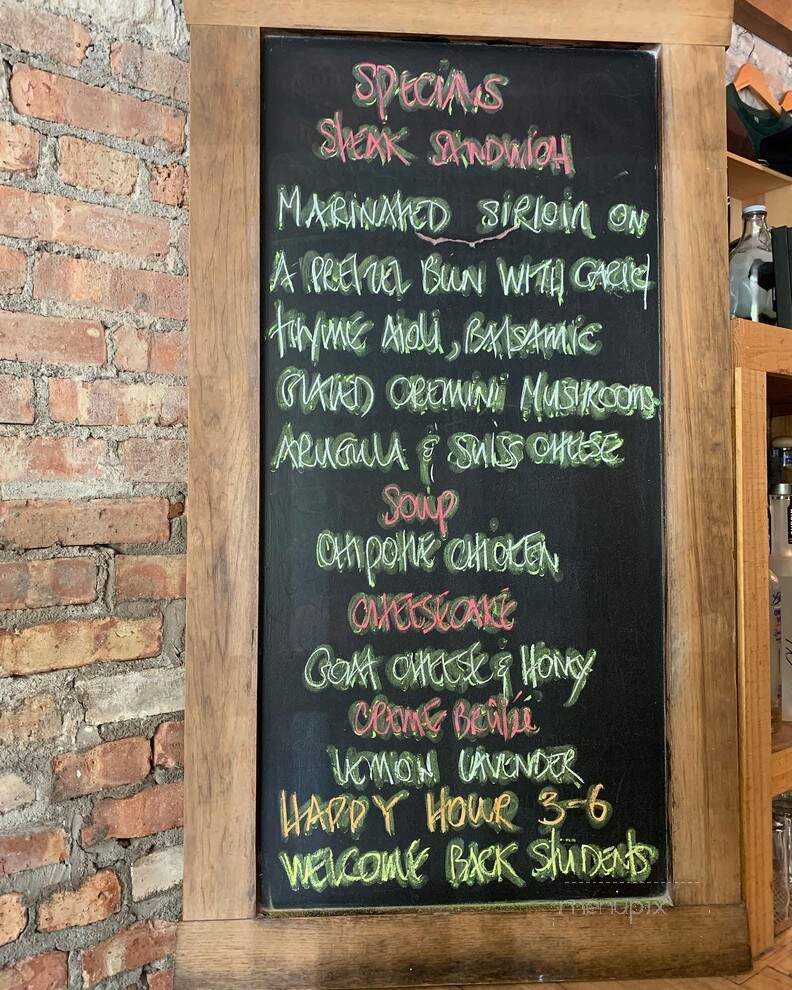 SPECIALS
STEAK SANDWICH
MARINATED SIRLOIN ON
A PRETZEL BUN WITH GARLIC
THYME AIOLI, BALSAMIC
GLAZED CREMINI MUSHROOMS
ARUGULA & SWISS CHEESE
SOUP
CHIPOTLE CHICKEN
CHEESECAKE
GOAT CHEESE & HONEY
CREME BRÛLÉE
LEMON LAVENDER
HAPPY HOUR 3-6
WELCOME BACK STUDENTS
menupix